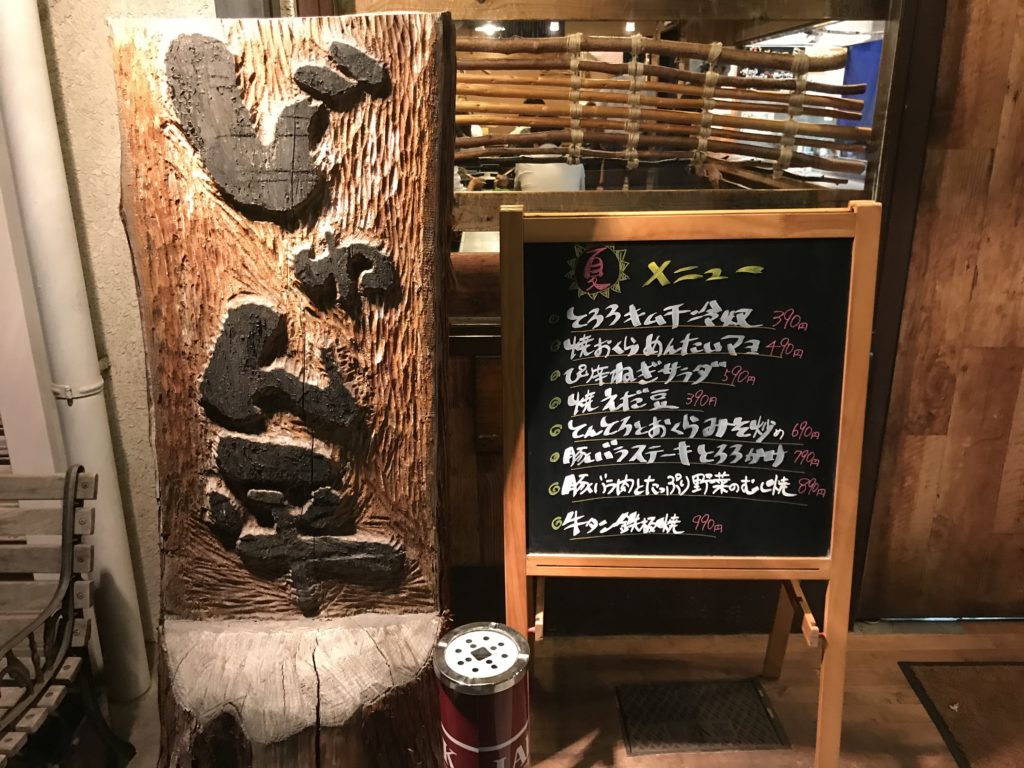 じゃん亭
夏 メニュー
とろろキムチ冷奴 390円
焼おくらめんたいマヨ 490円
ぴり辛ねぎサラダ 590円
焼えだ豆 390円
とんとろとおくらみそ炒め 690円
豚バラステーキとろろがけ 790円
豚バラ肉とたっぷり野菜のむし焼 890円
牛タン鉄板焼 990円